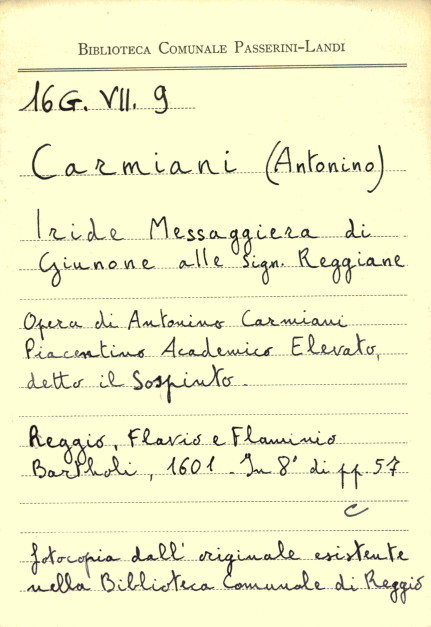 BIBLIOTECA COMUNALE PASSERINI-LANDI
16G. VII. 9
Carmiani (Antonino)
Iride Messaggiera di
Giunone alle Sign. Reggiane
Opera di Antonino Carmiani
Piacentino Academico Elevato,
detto il Sospinto.
Reggio, Flavio e Flaminio
Bartholi, 1601. In 8° di pp. 57
C
fotocopia dall'originale esistente
nella Biblioteca Comunale di Reggio